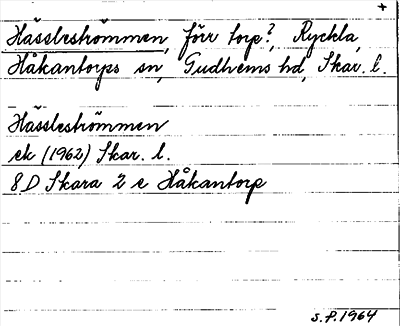 +
Hässleströmmen, förr torp?, Ryckla,
Håkantorps sn, Gudhems hd, Skar. l.
Hässleströmmen
ek (1962) Skar. l.
8D Skara 2 e Håkantorp
S.P. 1964